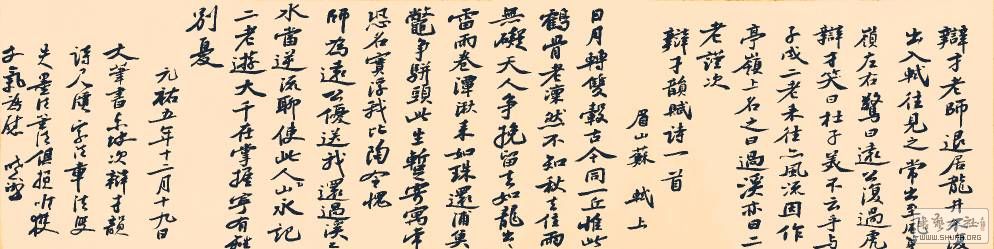 辯才老師退居龍井不復
出入軾往見之常出至風
嶺左右驚曰遠公復過虎
辯才笑曰杜子美不云乎与
子成二老来往亦風流因作
亭嶺上名之曰過溪亦曰二
老謹次
辯才韻賦詩一首
眉山蘇軾上
日月轉雙轂古今同一丘惟此
鶴骨老凜然不知秋去住兩
無礙天人争挽留去如龍出
雷雨卷潭湫来如珠還浦魚
鱉争駢頭此生暫寄寓常
恐名實浮我比陶令愧
師為遠公優送我還過溪
水當逆流聊使此人山永記
二老遊大千在掌握寧有離
別憂
元祐五年十二月十九日
大筆書東坡次辯才韻
WWW.SHUFA.ORG